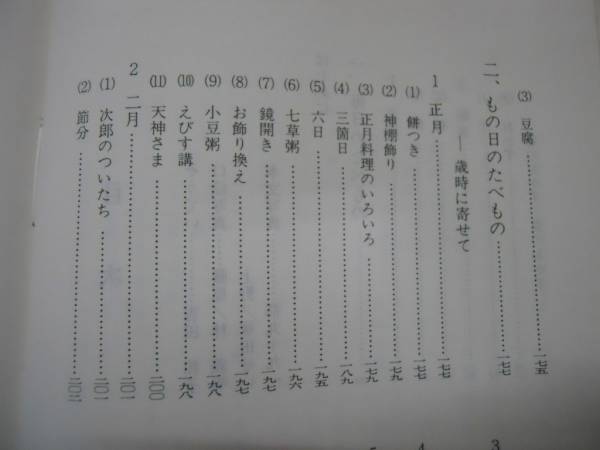 (3) 豆腐……一七五
二、もの日のたべもの……一七七
―歳時に寄せて
1 正月……一七七
(1) 餅つき……一七七
(2) 神棚飾り……一七九
(3) 正月料理のいろいろ……一七九
(4) 三箇日……一八九
(5) 六日……一九五
(6) 七草粥……一九六
(7) 鏡開き……一九七
(8) お飾り換え……一九七
(9) 小豆粥……一九八
(10) えびす講……一九八
(11) 天神さま……二〇〇
2 二月……二〇一
(1) 次郎のついたち……二〇一
(2) 節分……二〇二
3
4